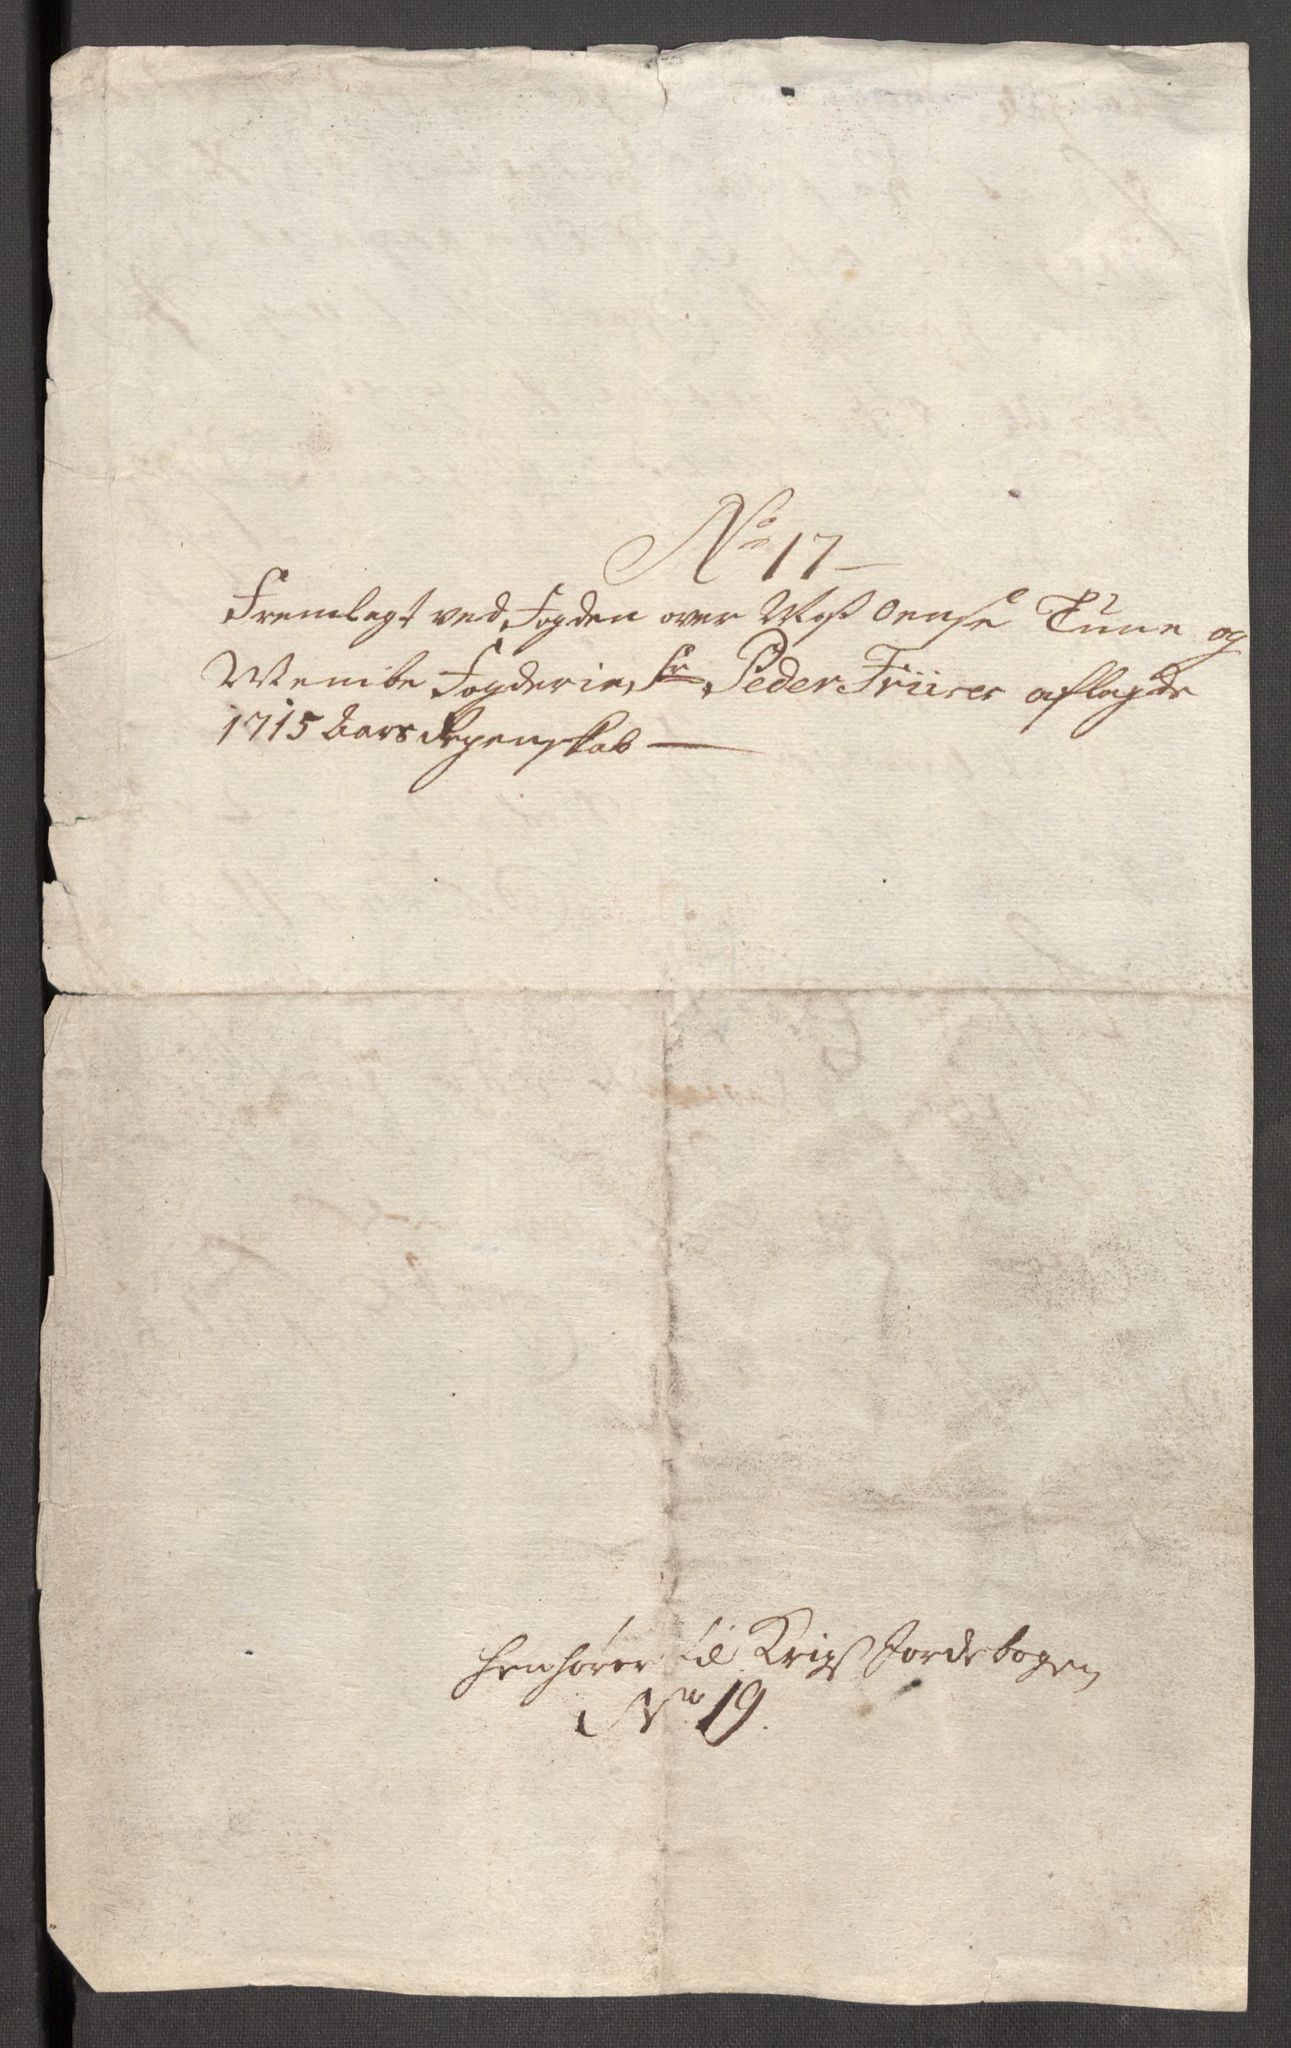 No 17
Fremlagt ved Fogden over Moss Onsøe Tune og
Wembe Fogderie, Sr Peder Friiser aflagde
1715 Aars Regenskab
henhører til Krigs Jordebogen
No 19.